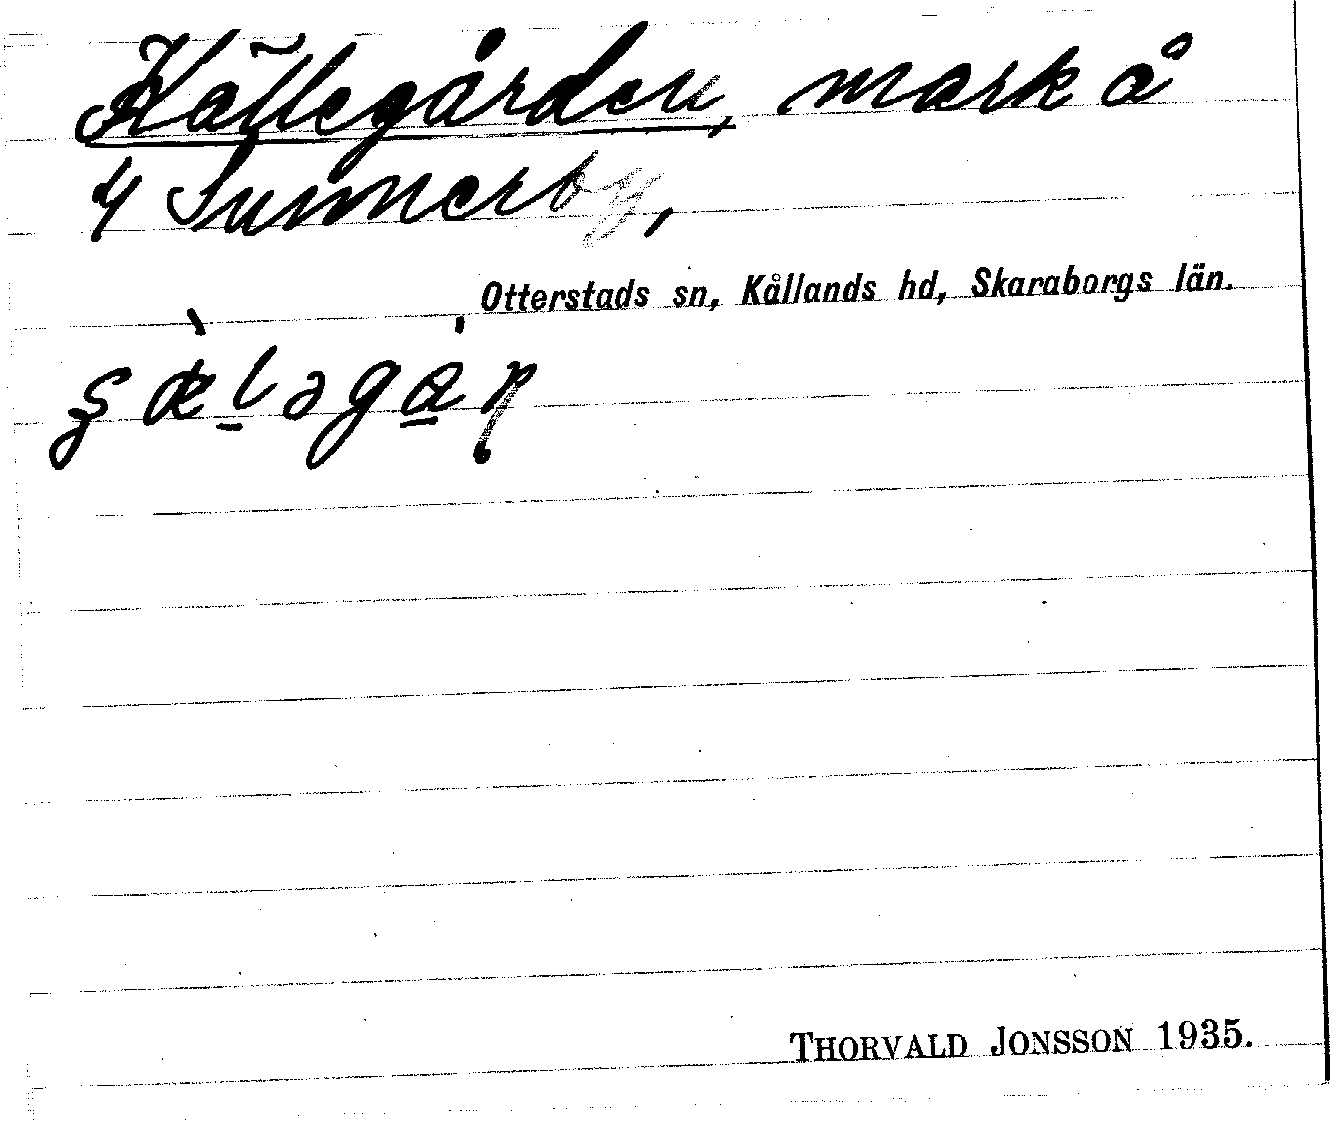 Källegården, mark å
4 Sunnerby,
Otterstads sn, Kållands hd, Skaraborgs län.
THORVALD JONSSON 1935.